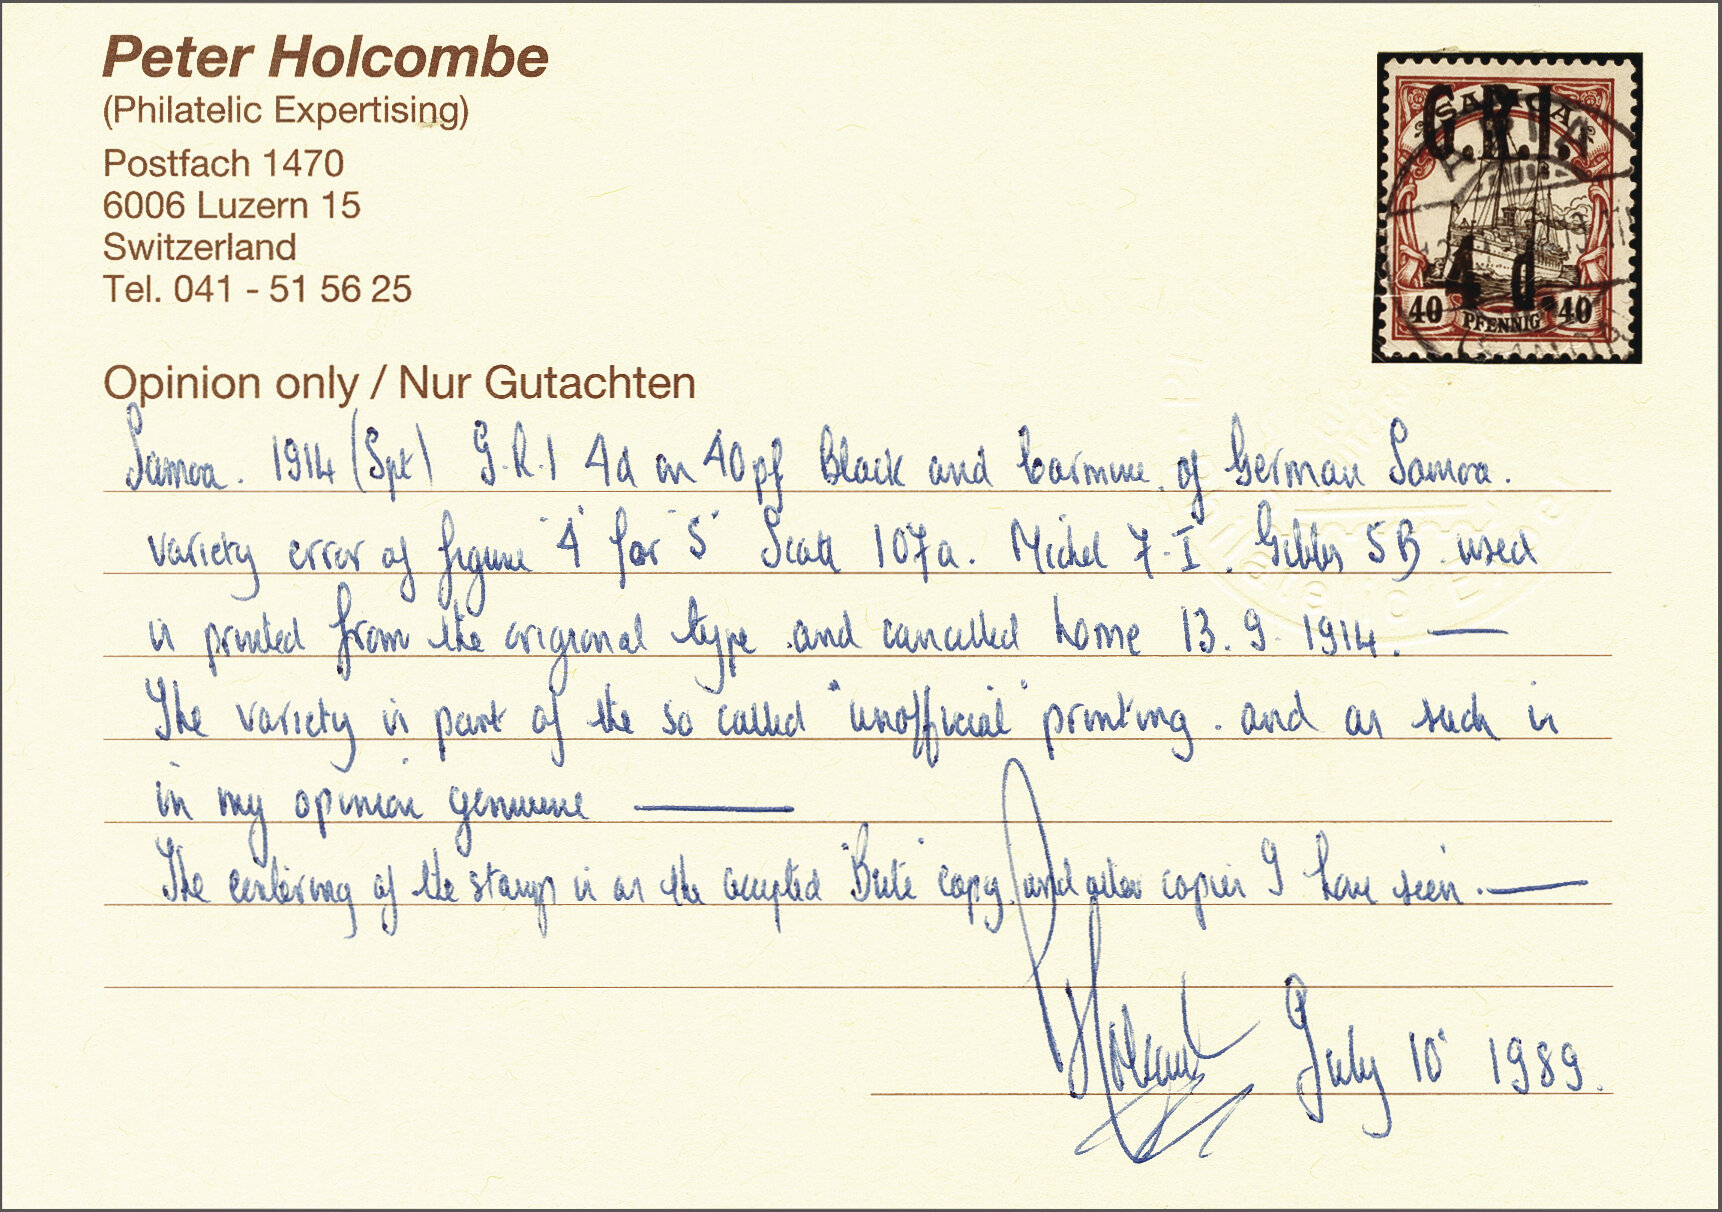 Peter Holcombe
(Philatelic Expertising)
Postfach 1470
6006 Luzern 15
Switzerland
Tel. 041 - 51 56 25
SAMOA
G.R.I.
4 d.
40 PFENNIG 40
Opinion only / Nur Gutachten
Samoa. 1914 (Spt) G.R.I 4d on 40pf Black and Carmine of German Samoa.
variety error of figure "4" for "5" Scott 107a. Michel 7-I. Gibbs 5B used
is printed from the origional type and cancelled 13.9.1914. —
The variety is part of the so called "unofficial" printing. and as such is
in my opinion genuine —
The centering of the stamp is as the accepted "Bute" copy and other copies I have seen. —
July 10 1989.